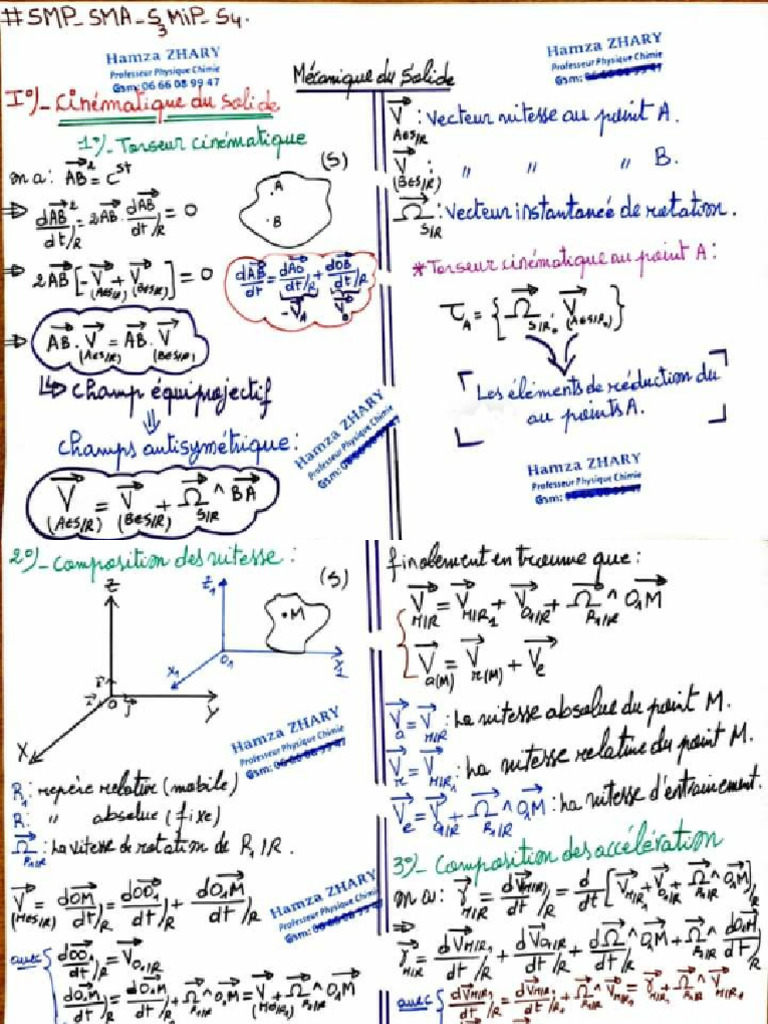 #SMP_SMA_S3MiP_S4.
Hamza ZHARY
Professeur Physique Chimie
Gsm: 06 66 08 99 47
Mécanique du Solide
Hamza ZHARY
Professeur Physique Chimie
Gsm:
I°/- Cinématique du Solide
1°/- Torseur cinématique
on a: AB² = Cst
(S)
A
B
⇒ dAB²/dt/R = 2AB · dAB/dt/R = 0
⇒ 2AB[-V(A∈S/R) + V(B∈S/R)] = 0
dAB/dt = dAO/dt/R + dOB/dt/R
-VA VB
⇒ AB · V(A∈S/R) = AB · V(B∈S/R)
↳ champ équiprojectif
⇓
champs antisymétrique:
V(A∈S/R) = V(B∈S/R) + Ω S/R ^ BA
Hamza ZHARY
Professeur Physique Chimie
Gsm:
V A∈S/R : Vecteur vitesse au point A.
V (B∈S/R) : " " " B.
Ω S/R : Vecteur instantané de rotation.
* Torseur cinématique au point A:
τA = {Ω S/R₀ ; V(A∈S/R₀)}
Les éléments de réduction du
au points A.
Hamza ZHARY
Professeur Physique Chimie
Gsm:
2°/- Composition des vitesse:
Z
Z1
(S)
M
O1
X1
O
Y
X
Hamza ZHARY
Professeur Physique Chimie
Gsm:
R1: repère relative (mobile)
R: " absolue (fixe)
Ω R1/R : la vitesse de rotation de R1/R.
V(M∈S/R) = dOM/dt/R = dOO1/dt/R + dO1M/dt/R
Hamza ZHARY
Professeur Physique Chimie
Gsm:
avec { dOO1/dt/R = V O1/R
dO1M/dt/R = dO1M/dt/R1 + Ω R1/R ^ O1M = V(M∈S/R1) + Ω R1/R ^ O1M
finalement en trouve que:
V M/R = V M/R1 + V O1/R + Ω R1/R ^ O1M
V a(M) = V r(M) + Ve
Va = V M/R : la vitesse absolue du point M.
Vr = V M/R1 : la vitesse relative du point M.
Ve = V O1/R + Ω R1/R ^ O1M : la vitesse d'entrainement.
3°/- Composition des accélération
on a: γ M/R = dV M/R/dt/R = d/dt [V M/R1 + V O1/R + Ω R1/R ^ O1M]/R
⇒
γ M/R = dV M/R1/dt/R + dV O1/R/dt/R + dΩ/dt/R ^ O1M + Ω R1/R ^ dO1M/dt/R
avec { dV M/R1/dt/R = dV M/R1/dt/R1 + Ω R1/R ^ V M/R1 = γ M/R1 + Ω R1/R ^ V M/R1